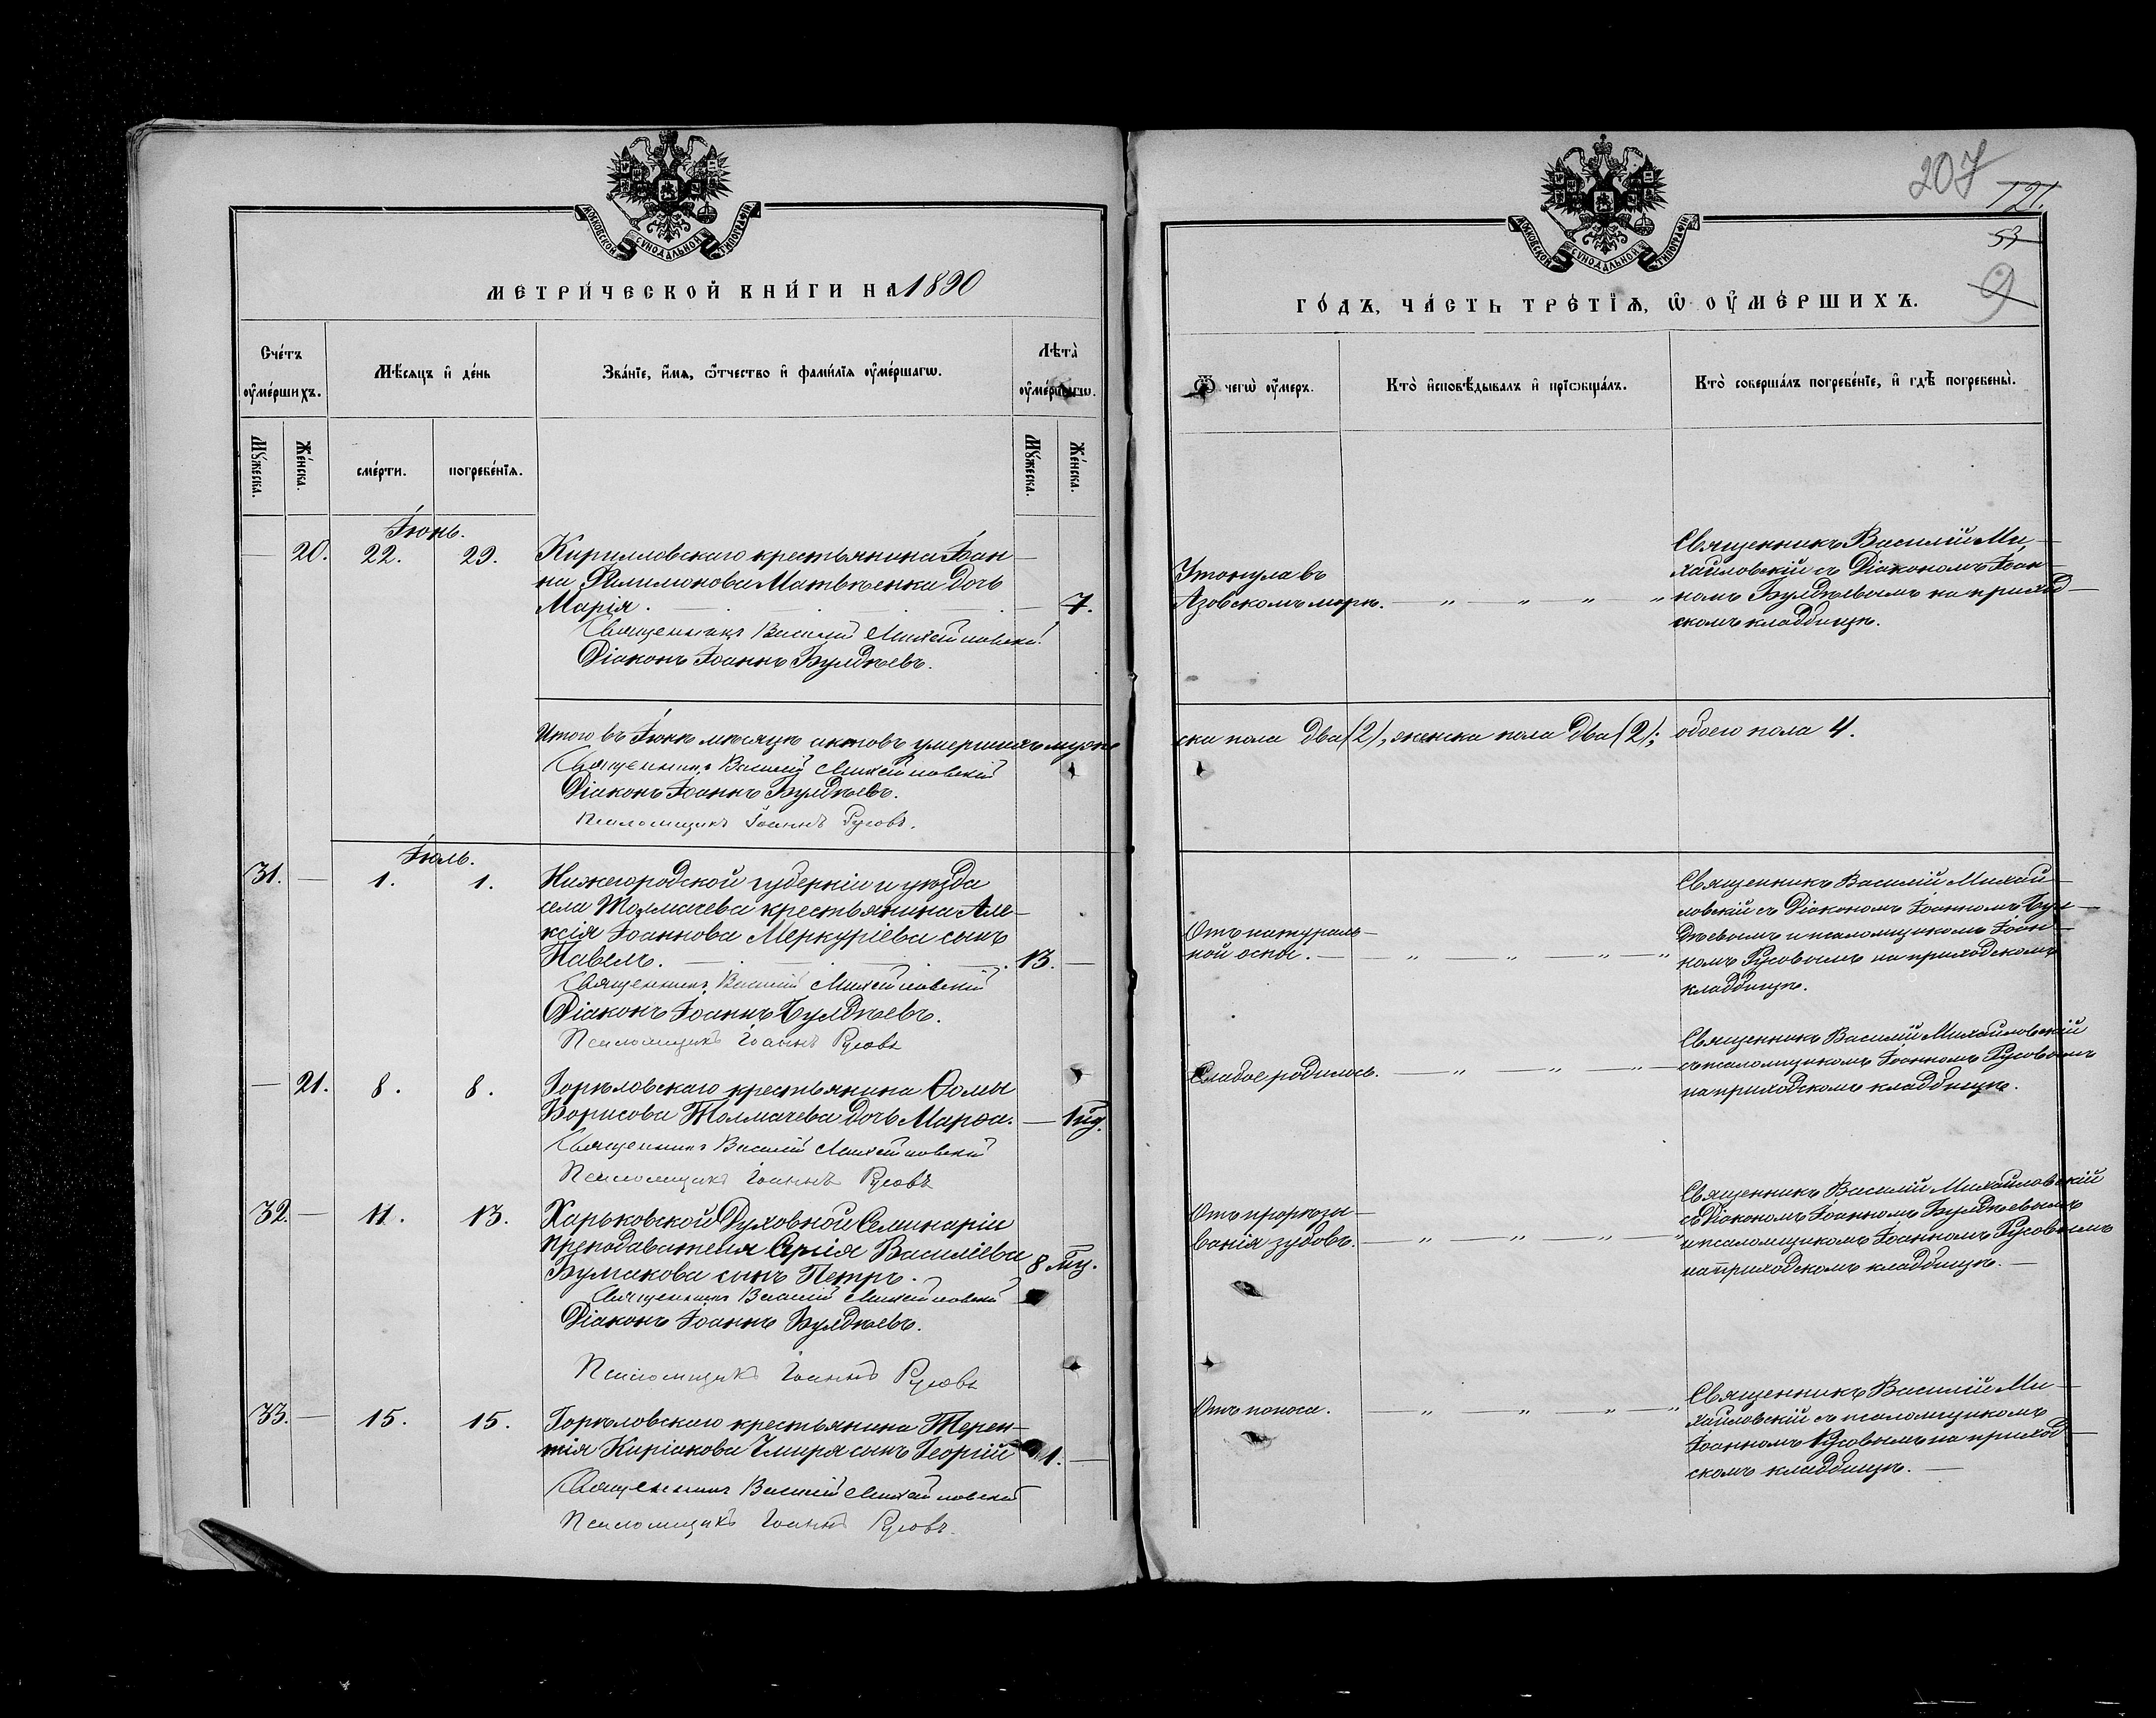 МОСКОВСКОЙ СѴНОДАЛЬНОЙ ТИПОГРАФІИ
МЕТРИ́ЧЕСКОЙ КНИ́ГИ НА 1890
Сче́тъ оу҆ме́ршихъ.
Мѣ́сяцъ и҆ де́нь
Зва́нїе, и҆́мя, ѻ҆́тчество и҆ фами́лїя оу҆ме́ршагѡ.
Лѣта̀ оу҆ме́ршагѡ.
Мꙋ́жеска.
Же́нска.
сме́рти.
погребе́нїя.
Мꙋ́жеска.
Же́нска.
Іюнь.
— 20. 22. 23. Кирилловскаго крестьянина Іоан-
на Филимонова Матвѣенка дочь
Марія. — 7.
Священникъ Василій Михайловскій
Діаконъ Іоаннъ Булдѣевъ.
Итого въ Іюнѣ мѣсяцѣ актовъ умершихъ муже
Священникъ Василій Михайловскій
Діаконъ Іоаннъ Булдѣевъ.
Псаломщикъ Іоаннъ Русовъ.
Іюль.
31. — 1. 1. Нижегородской губерніи и уѣзда
села Толмачева крестьянина Але-
ксія Іоаннова Меркуріева сынъ
Павелъ. 13. —
Священникъ Василій Михайловскій
Діаконъ Іоаннъ Булдѣевъ.
Псаломщикъ Іоаннъ Русовъ
— 21. 8. 8. Горѣловскаго крестьянина Ѳомы
Борисова Толмачева дочь Марѳа. —
Священникъ Василій Михайловскій
Псаломщикъ Іоаннъ Русовъ
32. — 11. 13. Харьковской Духовной Семинаріи
преподавателя Василіева
сынъ Петръ. 8 мц.
Священникъ Василій Михайловскій
Діаконъ Іоаннъ Булдѣевъ.
Псаломщикъ Іоаннъ Русовъ
33. — 15. 15. Горѣловскаго крестьянина Терен-
тія Киріакова сынъ Георгій 1. —
Священникъ Василій Михайловскій
Псаломщикъ Іоаннъ Русовъ.
207
121.
53
9
МОСКОВСКОЙ СѴНОДАЛЬНОЙ ТИПОГРАФІИ
ГО́ДЪ, ЧА́СТЬ ТРЕ́ТЇѦ, Ѡ҆ ОУ҆МЕ́РШИХЪ.
Ѿ чегѡ̀ оу҆́меръ.
Кто̀ и҆сповѣ́дывалъ и҆ прїѡбща́лъ.
Кто̀ соверша́лъ погребе́нїе, и҆ гдѣ̀ погребены̀.
Утонула въ
Азовскомъ морѣ. — „ — „ — „ — „
Священникъ Василій Ми-
хайловскій съ Діакономъ Іоан-
номъ Булдѣевымъ на приход-
скомъ кладбищѣ.
ска пола два (2), женска пола два (2); обоего пола 4.
Отъ натураль-
ной оспы. — „ — „ — „ — „
Священникъ Василій Михай-
ловскій съ Діакономъ Іоанномъ Бул-
дѣевымъ и псаломщикомъ Іоан-
номъ Русовымъ на приходскомъ
кладбищѣ.
Слабое родилось. — „ — „ — „ —
Священникъ Василій Михайловскій
съ псаломщикомъ Іоанномъ Русовымъ
на приходскомъ кладбищѣ.
Отъ прорѣзы-
ванія зубовъ. — „ — „ — „ — „
Священникъ Василій Михайловскій
съ Діакономъ Іоанномъ Булдѣевымъ
и псаломщикомъ Іоанномъ Русовымъ
на приходскомъ кладбищѣ. —
Отъ поноса. — „ — „ — „ — „
Священникъ Василій Ми-
хайловскій съ псаломщикомъ
Іоанномъ Русовымъ на приход-
скомъ кладбищѣ. —